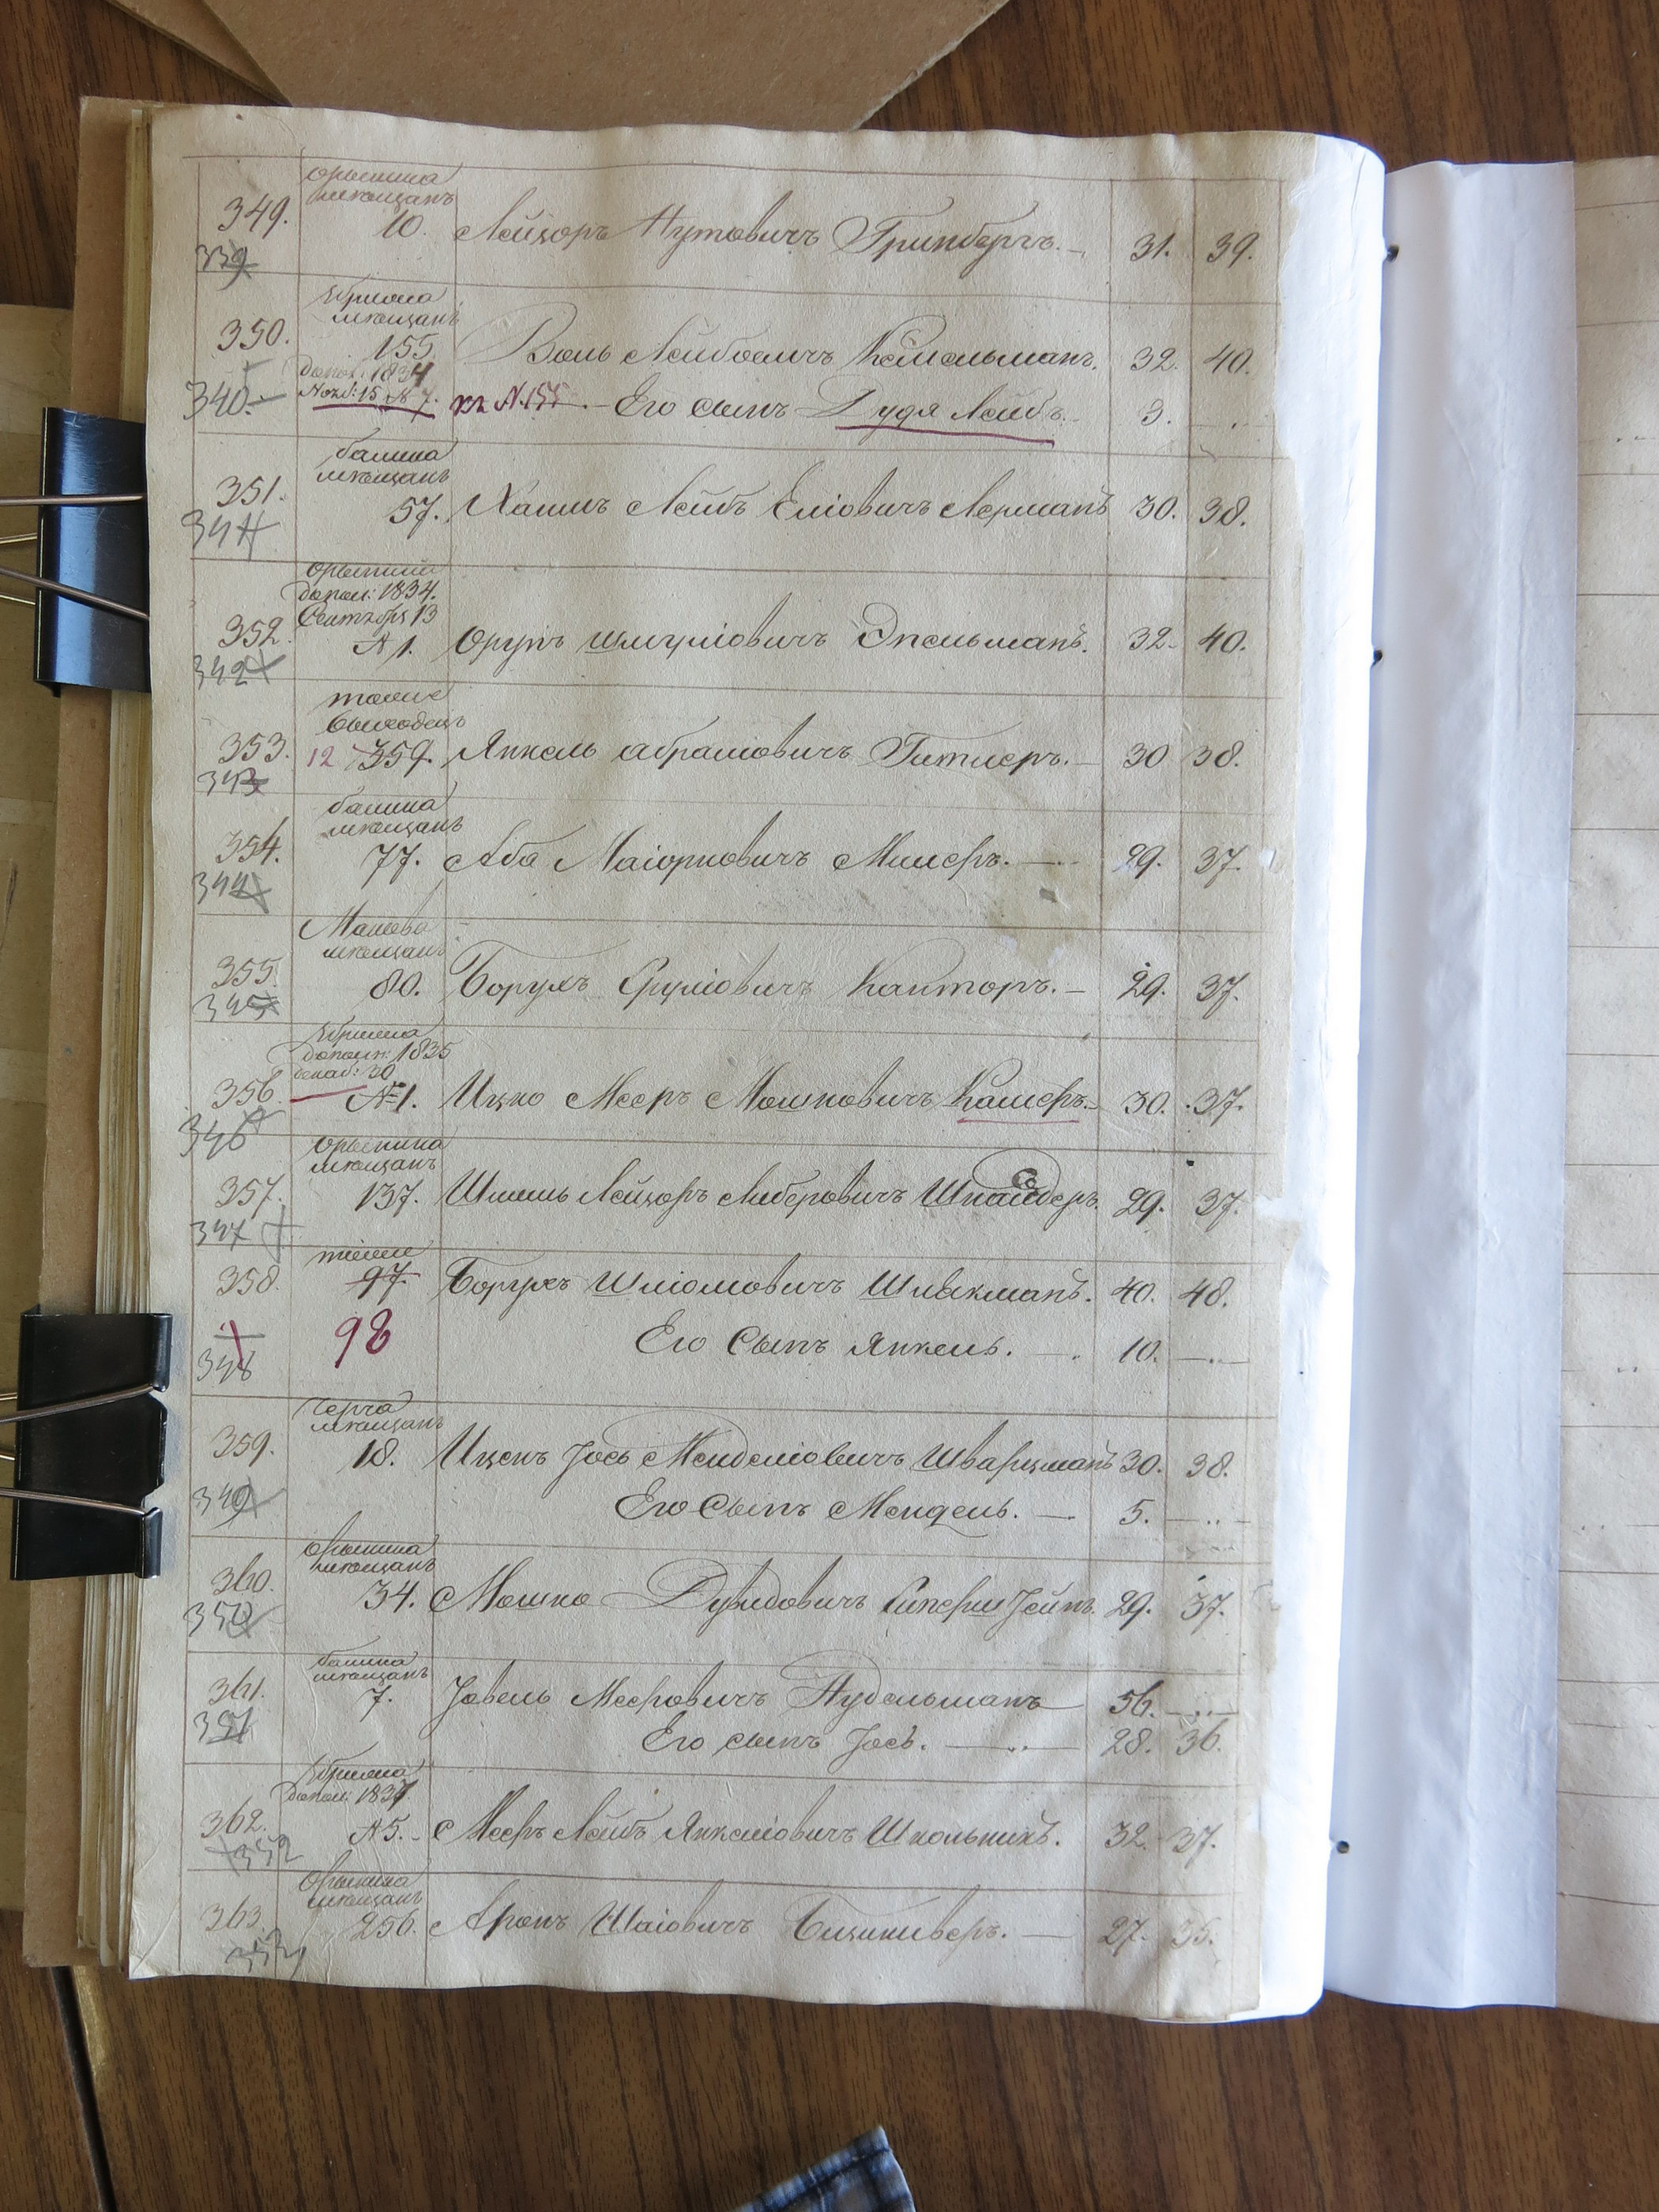 орынина
мещанъ
349. 10. Лейзоръ Нутовичъ Гринбергъ. 31. 39.
339
мещанъ
350. 155. Воль Лейбовичъ Кейсельманъ. 32. 40.
допол: 1834
340. Нояб: 15 № 7. къ N. 155 Его сынъ Дудя Лейбъ. 3.
балина
мещанъ
351. 57. Хаимъ Лейбъ Еліовичъ Лерманъ 30. 38.
341
орынина
допол: 1834.
Сентября 13
352. № 1. Орунъ Шмуліовичъ Энсельманъ. 32. 40.
342
тоже
выходецъ
353. 12 359. Янкель Абрамовичъ Гитлеръ. 30 38.
343
балина
мещанъ
354. 77. Аба Маіорковичъ Милеръ. 29. 37.
344
Макова
мещанъ
355. 80. Борухъ Сруліовичъ Канторъ. 29. 37.
345
дополн: 1835
декаб: 30
356. № 1. Ицко Мееръ Мошковичъ Камеръ. 30. 37.
346
орынина
мещанъ
357. 137. Шмиль Лейзоръ Либеровичъ Шнайдеръ. 29. 37.
347
тоже
358. 97. Борухъ Шліомовичъ Шлякманъ. 40. 48.
348 98 Его Сынъ Янкель. 10.
Черча
мещанъ
359. 18. Ицекъ Іось Менделіовичъ Шварцманъ 30. 38.
349 Его Сынъ Мендель. 5.
орынина
мещанъ
360. 34. Мошко Дувидовичъ 29. 37.
350
балина
мещанъ
361. 7. Іовель Мееровичъ Нудельманъ 56.
351 Его сынъ Іось. 28. 36.
допол: 1837.
362. № 5. Мееръ Лейбъ Янкеліовичъ Школьникъ. 32. 37.
352
Орынина
мещанъ
363. 256. Аронъ Шаіовичъ 27. 35.